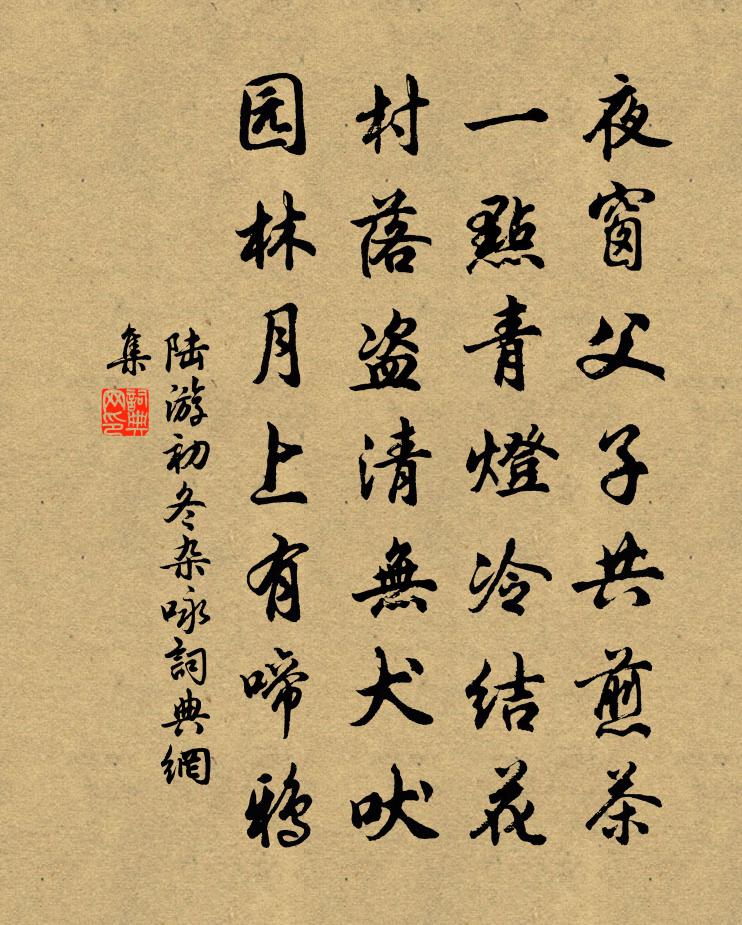 夜窗父子共煎茶
一點青燈冷结花
村落盗清無犬吠
园林月上有啼鴉
陆游初冬杂咏詞典網
集
詞典
网印